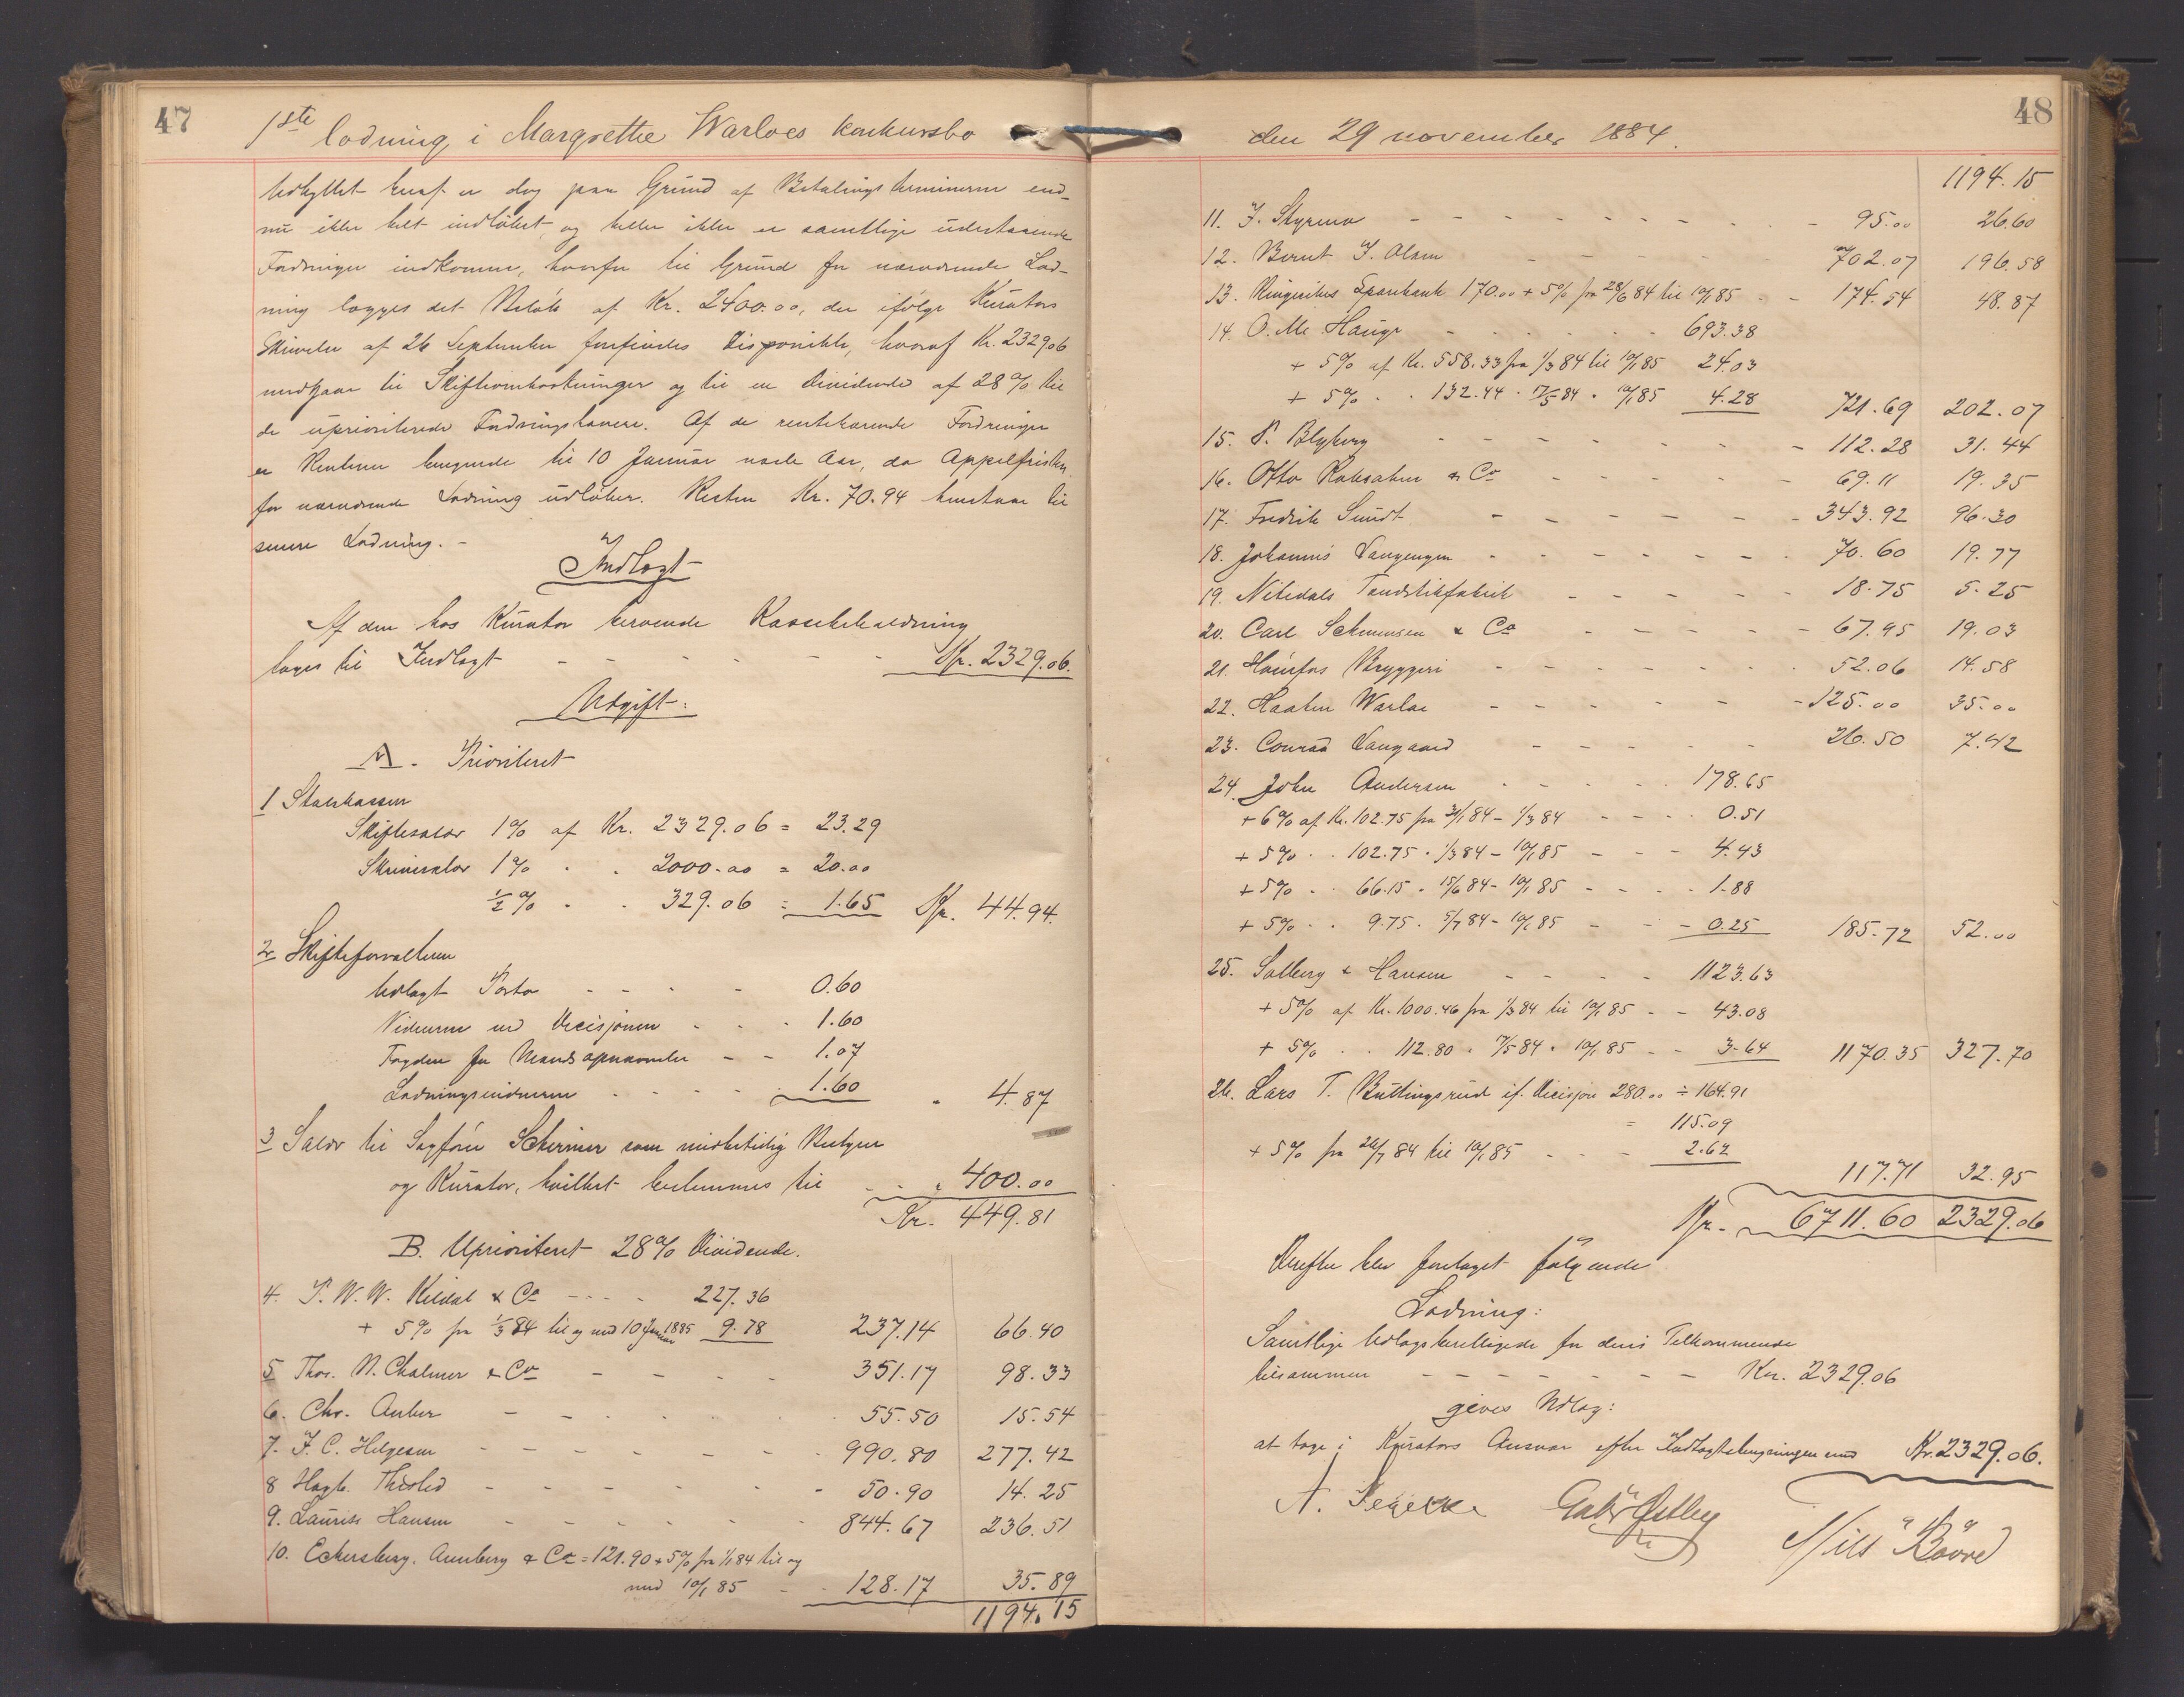 47
1ste lodning i Margrethe Warloes konkursbo
Udbyttet heraf er dog paa Grund af Betalingsterminerne end-
nu ikke helt indløbet og heller ikke er samtlige udestaaende
Fordringer indkomne, hvorfor til Grund for nærværende Lod-
ning lægges det Beløb af Kr. 2400.00, der ifølge Kurators
Skrivelse af 26 September forefindes disponible, hvoraf Kr. 2329.06
medgaar til Skifteomkostninger og til en Dividende af 28% til
de uprioriterede Fordringshavere. Af de rentebærende Fordringer
er Renterne beregnede til 10 Januar næste Aar, da Appelfristen
for nærværende Lodning udløber. Resten Kr. 70.94 henstaar til
senere Lodning. -
Indtægt
Af den hos Kurator beroende Kassebeholdning
tages til Indtægt - - - - - - Kr. 2329.06.
Udgift:
A. Prioriteret
1 Statskassen
Skiftesalær 1% af Kr. 2329.06 = 23.29
Skriversalær 1% . . 2000.00 = 20.00
½% . . 329.06 = 1.65 Kr. 44.94.
2 Skifteforvalteren
Udlagt Porto - - - - 0.60
Vidnerne ved Decisjonen - - - 1.60
for - - 1.07
Lodningsvidnerne - - - - 1.60 " 4.87
3 Salær til Sagfører Schirmer som midlertidig Bestyrer
og Kurator, hvilket bestemmes til - - " 400.00
Kr. 449.81
B. Uprioriteret 28% Dividende.
4. P. W. W. Kildal & Co - - - - 227.36
+ 5% fra 1/3 84 til og med 10 Januar 1885 9.78 237.14 66.40
5 Thos. N. Chalmer & Co - - - - 351.17 98.33
6. Chr. Anker - - - - - 55.50 15.54
7. F. C. Helgesen - - - - - - 990.80 277.42
8 Hagb. - - - - - - 50.90 14.25
9. Lauritz Hansen - - - - - - 844.67 236.51
10. Eckersberg, Aumberg & Co = 121.90 + 5% fra 1/1 84 til og
med 10/1 85 - - 128.17 35.89
1194.15
48
den 29 november 1884.
1194.15
11. J. Styrmo - - - - - - - - 95.00 26.60
12. Bernt J. Olsen - - - - - 702.07 196.58
13. Ringerikes Sparebank 170.00 + 5% fra 28/6 84 til 10/1 85 - - 174.54 48.87
14. O. M. Hauge - - - - - - 693.38
+ 5% af Kr. 558.33 fra 1/3 84 til 10/1 85 24.03
+ 5% . . 132.44 . 17/5 84 . 10/1 85 4.28 721.69 202.07
15. P. Blyberg - - - - - - - 112.28 31.44
16. Otto Robsahm & Co - - - - - 69.11 19.35
17. Fredrik Sundt - - - - - - 343.92 96.30
18. Johannes Langengen - - - - - - - 70.60 19.77
19. Nitedals Tændstikfabrik - - - - - 18.75 5.25
20. Carl Schwensen & Co - - - - - 67.95 19.03
21. Hønefos Bryggeri - - - - - - - 52.06 14.58
22. Haaken Warloe - - - - - - 125.00 35.00
23. Conrad Langaard - - - - - 26.50 7.42
24. John Andersen - - - - - 178.65
+ 6% af Kr. 102.75 fra 31/1 84 - 1/3 84 - - - - 0.51
+ 5% . . 102.75 . 1/3 84 - 10/1 85 - - - 4.43
+ 5% . . 66.15 . 15/6 84 - 10/1 85 - - - - 1.88
+ 5% . . 9.75 . 5/7 84 - 10/1 85 - - - 0.25 185.72 52.00
25. Solberg & Hansen - - - - 1123.63
+ 5% af Kr. 1000.46 fra 1/3 84 til 10/1 85 - - 43.08
+ 5% . . 112.80 . 17/5 84 . 10/1 85 - - 3.64 1170.35 327.70
26. Lars T. Buttingsrud if. Decisjon 280.00 ÷ 164.91
= 115.09
+ 5% fra 26/7 84 til 10/1 85 - - - 2.62
117.71 32.95
Kr. 6711.60 2329.06
Derefter blev foretaget følgende
Lodning:
Samtlige Udlagsberettigede for deres Tilkommende
tilsammen - - - - - - - Kr. 2329.06
gives Udlæg:
at tage i Kurators Ansvar efter Indtægtsberegningen med Kr. 2329.06.
Gabr Østby
Nils Bovre